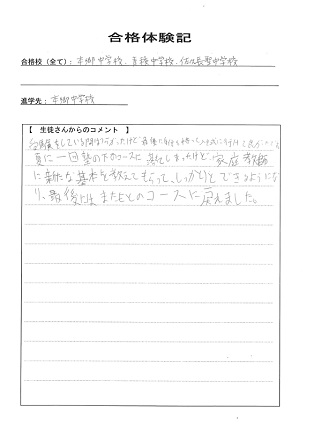 合格体験記
合格校（全て）：本郷中学校、青稜中学校、佐久長聖中学校
進学先：本郷中学校
【 生徒さんからのコメント 】
受験をしている間は
夏に一回塾の下のコースに落ちてしまったけど、家庭教師
に新たな基本を教えてもらって、しっかりとできるようにな
り、最後にはまたもとのコースに戻れました。